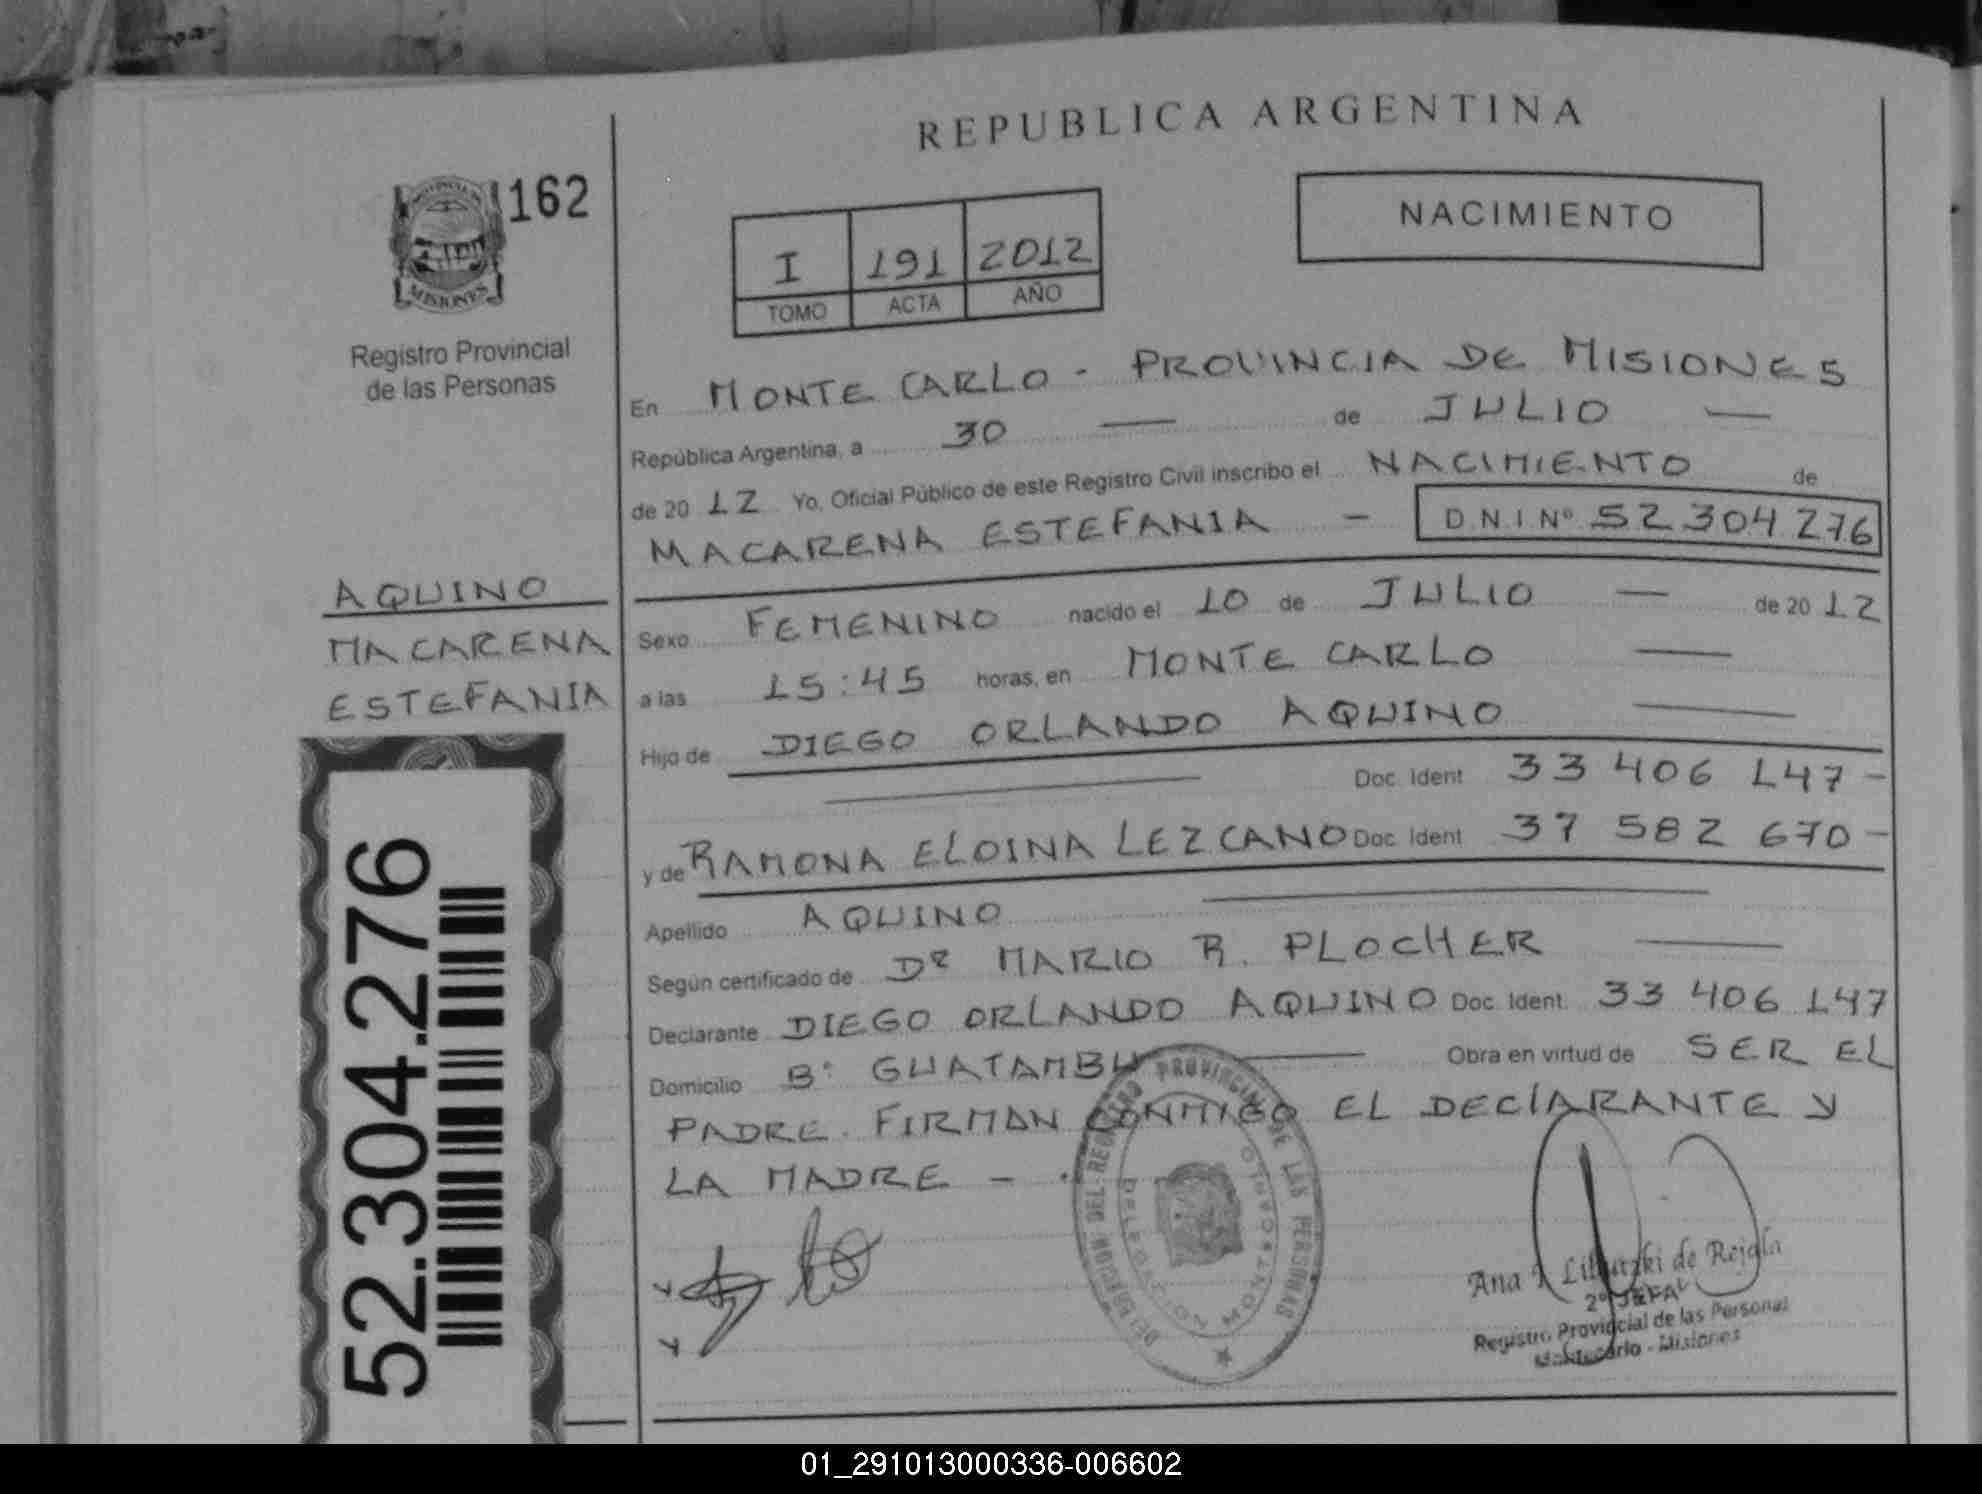 REPUBLICA ARGENTINA
162
NACIMIENTO
I 191 2012
TOMO ACTA AÑO
MISIONES
Registro Provincial
de las Personas
En MONTE CARLO - PROVINCIA DE MISIONES
República Argentina, a 30 — de JULIO —
de 20 12 Yo, Oficial Público de este Registro Civil inscribo el NACIMIENTO de
MACARENA ESTEFANIA - D.N.I Nº 52.304.276
AQUINO
MACARENA
ESTEFANIA
Sexo FEMENINO nacido el 10 de JULIO — de 20 12
a las 15:45 horas, en MONTE CARLO —
Hijo de DIEGO ORLANDO AQUINO —
Doc. Ident 33 406 147 -
y de RAMONA ELOINA LEZCANO Doc. Ident 37 582 670 -
Apellido AQUINO
Según certificado de Dr MARIO R. PLOCHER —
Declarante DIEGO ORLANDO AQUINO Doc. Ident. 33 406 147
Domicilio Bº GUATAMBU — Obra en virtud de SER EL
PADRE. FIRMAN CONMIGO EL DECLARANTE Y
LA MADRE - .
52.304.276
DELEGACION DEL REGISTRO PROVINCIAL DE LAS PERSONAS
DELEGACION MONTECARLO
Ana de Rejala
2º JEFA
Registro Provincial de las Personas
Montecarlo - Misiones
01_291013000336-006602